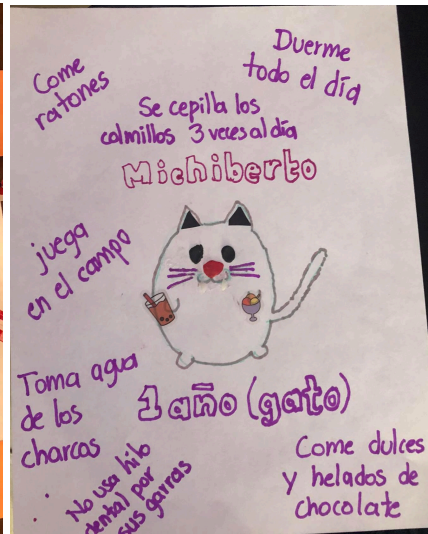 Come
ratones
Duerme
todo el día
Se cepilla los
colmillos 3 veces al día
Michiberto
juega
en el campo
Toma agua
de los
charcos
1 año (gato)
No usa hilo
dental por
sus garras
Come dulces
y helados de
chocolate